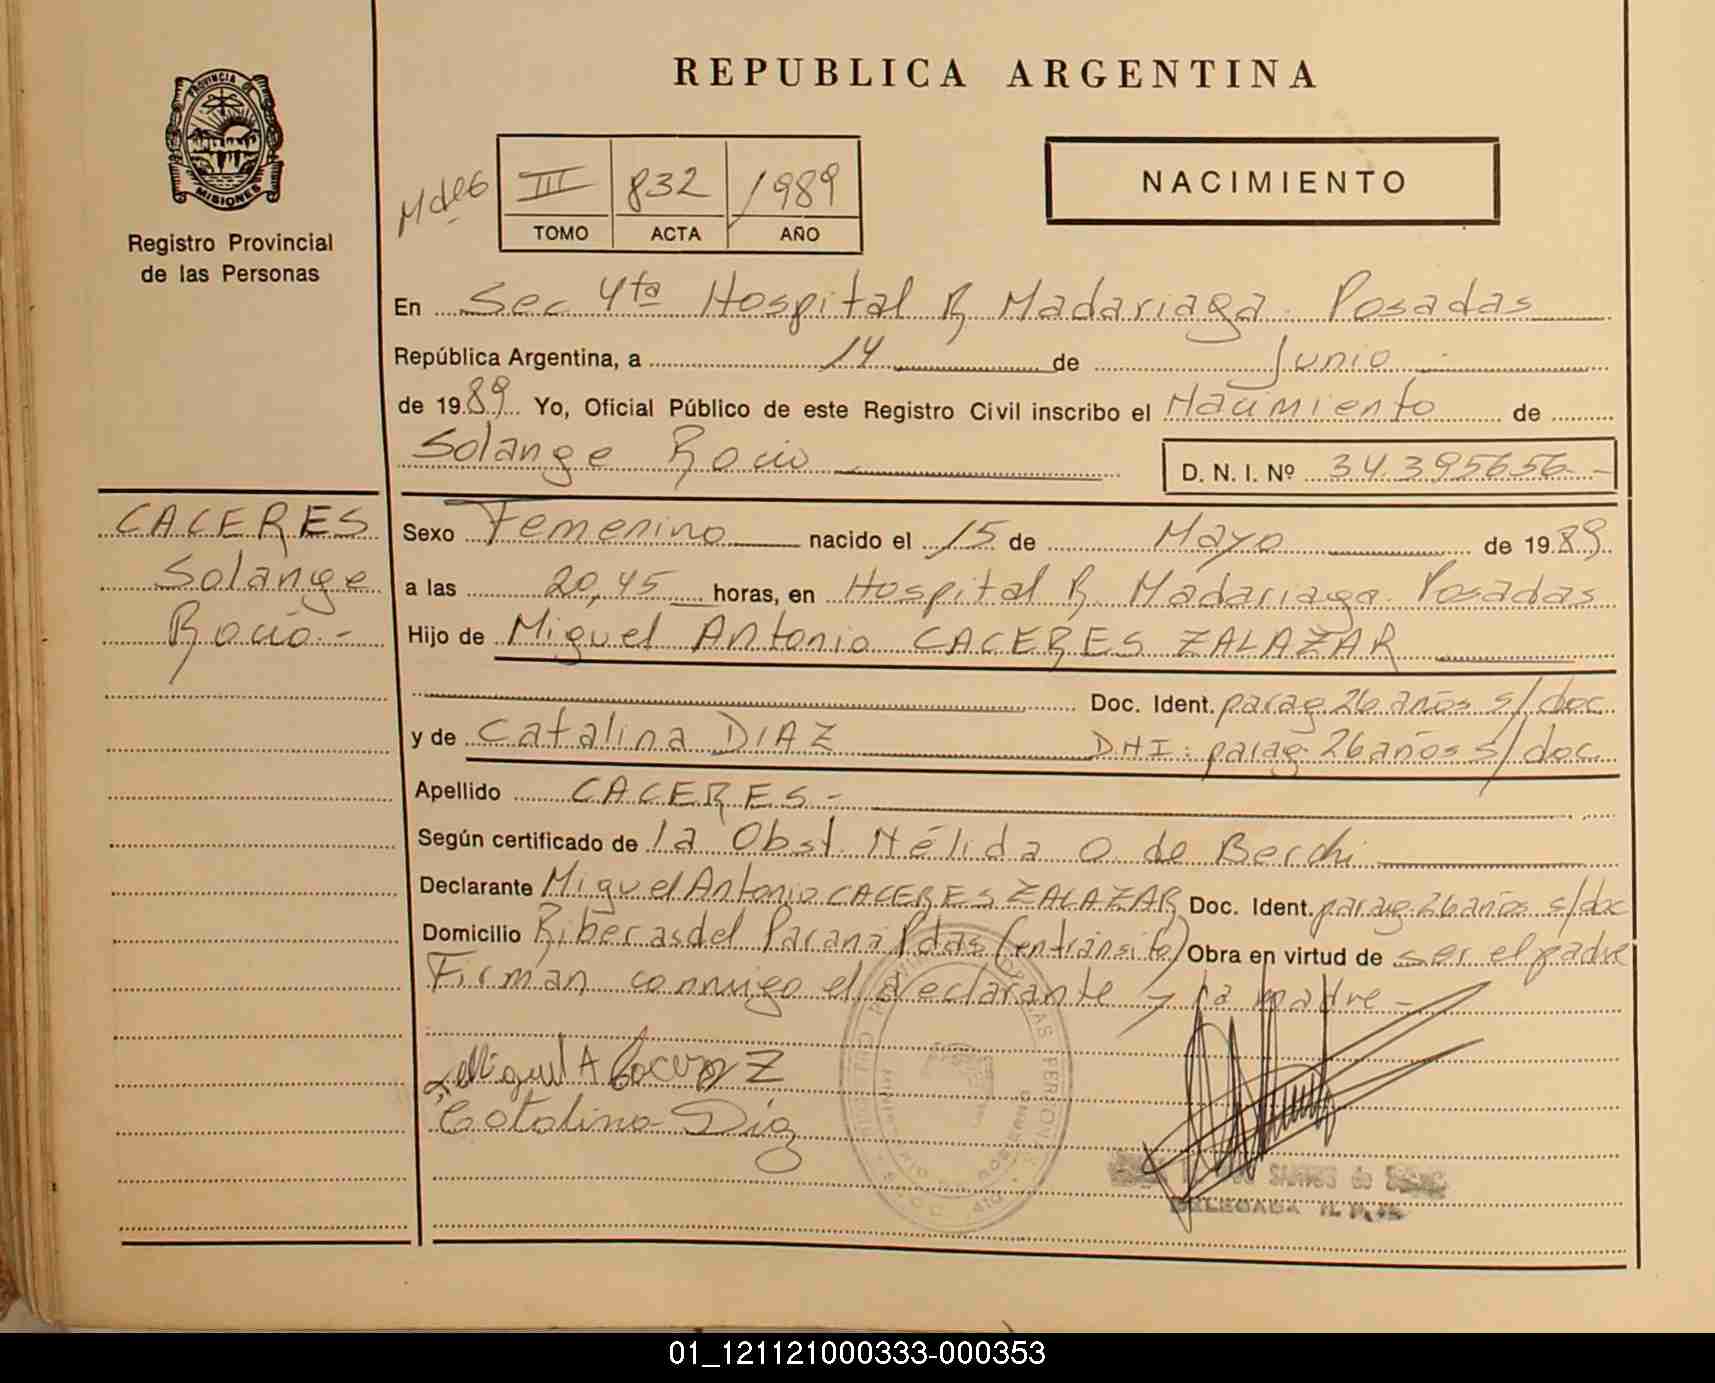 PROVINCIA DE
MISIONES
Registro Provincial
de las Personas
REPUBLICA ARGENTINA
III 832 1989
TOMO ACTA AÑO
NACIMIENTO
En Sec 4ta Hospital R Madariaga Posadas
República Argentina, a 14 de Junio
de 1989 Yo, Oficial Público de este Registro Civil inscribo el Nacimiento de
Solange Rocio
D. N. I. Nº 34.395656-
CACERES
Solange
Rocio.-
Sexo Femenino nacido el 15 de Mayo de 1989
a las 20,45 horas, en Hospital R. Madariaga. Posadas
Hijo de Miguel Antonio CACERES ZALAZAR
Doc. Ident. parag. 26 años s/doc
y de Catalina DIAZ DNI: parag. 26 años s/doc.
Apellido CACERES-
Según certificado de la Obst. Nélida O. de Berchi
Declarante Miguel Antonio CACERES ZALAZAR Doc. Ident. parag. 26 años s/doc
Domicilio Riberas del Paraná Pdas (en tránsito) Obra en virtud de ser el padre
Firman conmigo el declarante y la madre-
Miguel A
Catalina Diaz
SANTOS de
DELEGADA
01_121121000333-000353